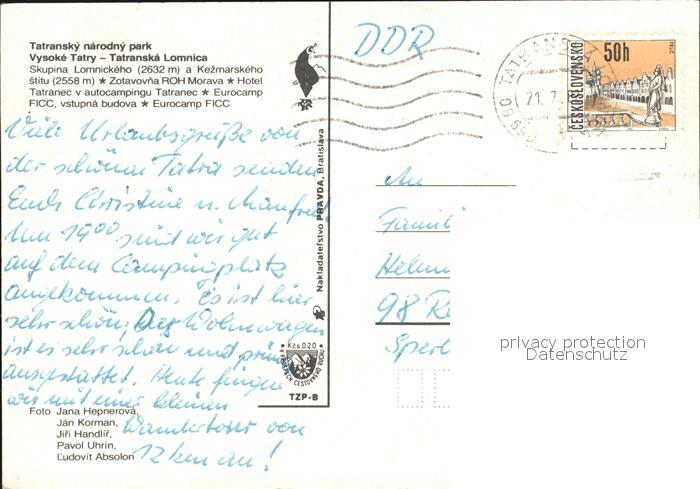 Tatranský národný park
Vysoké Tatry – Tatranská Lomnica
Skupina Lomnického (2632 m) a Kežmarského
štítu (2558 m) ★ Zotavovňa ROH Morava ★ Hotel
Tatranec v autocampingu Tatranec ★ Eurocamp
FICC, vstupná budova ★ Eurocamp FICC
Viele Urlaubsgrüße von
der schönen Tatra senden
Euch Christine u. Manfred.
Um 19⁰⁰ sind wir gut
auf dem Campingplatz
angekommen. Es ist hier
sehr schön, Der Wohnwagen
ist es sehr schön und prima
ausgestattet. Heute fingen
wir mit einer kleinen
Wandertour von
12 km an!
Foto Jana Hepnerová,
Ján Korman,
Jiří Handlíř,
Pavol Uhrín,
Ľudovít Absolon
Nakladateľstvo PRAVDA, Bratislava
Kčs 0,20
CESTOVNÉHO RUCHU
TZP-B
DDR
059 60 TATRANSK
21. 7.
ČESKOSLOVENSKO
50h
TELČ
An
Famili
Helm
98 Re
Sperl
privacy protection
Datenschutz